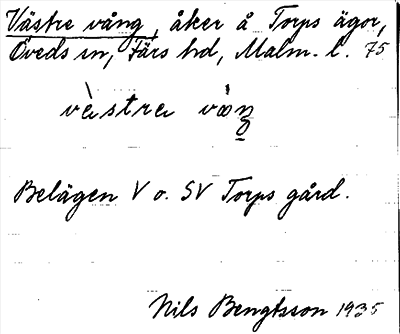 Västre vång, åker å Torps ägor,
Öveds sn, Färs hd, Malm. l. 75
vèstra vàŋ
Belägen V o. SV Torps gård.
Nils Bengtsson 1935